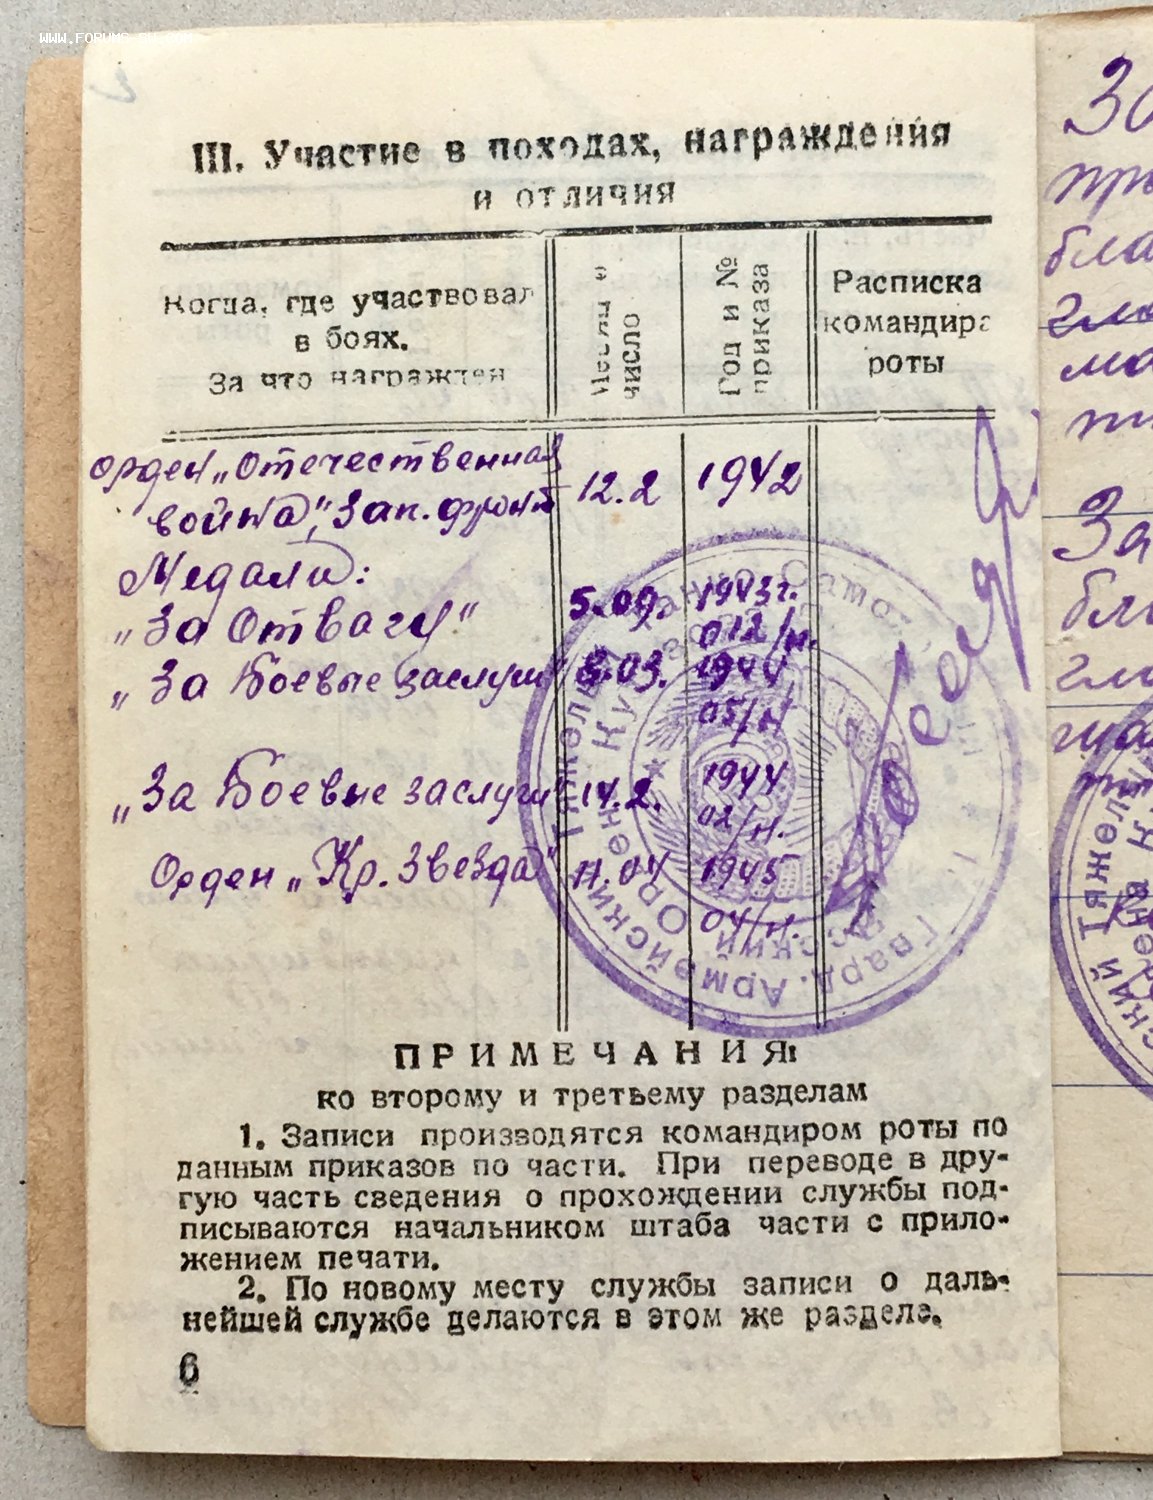 WWW.FORUMS-SU.COM
III. Участие в походах, награждения
и отличия
Когда, где участвовал
в боях.
За что награжден
Месяц и
число
Год и №
приказа
Расписка
командира
роты
орден „Отечественная 12.2 1942
война", Зап. фронт
Медали:
„За Отвагу" 5.09. 1943г.
012/н.
„За Боевые заслуги" 8.03. 1944
05/н
„За Боевые заслуги" 14.2. 1944
02/н.
Орден „Кр. Звезда" 11.04 1945
04/н.
Гвард. Армейский Тяжелый
Орден
ПРИМЕЧАНИЯ:
ко второму и третьему разделам
1. Записи производятся командиром роты по
данным приказов по части. При переводе в дру-
гую часть сведения о прохождении службы под-
писываются начальником штаба части с прило-
жением печати.
2. По новому месту службы записи о даль-
нейшей службе делаются в этом же разделе.
6
За
бла
За
Тяжел